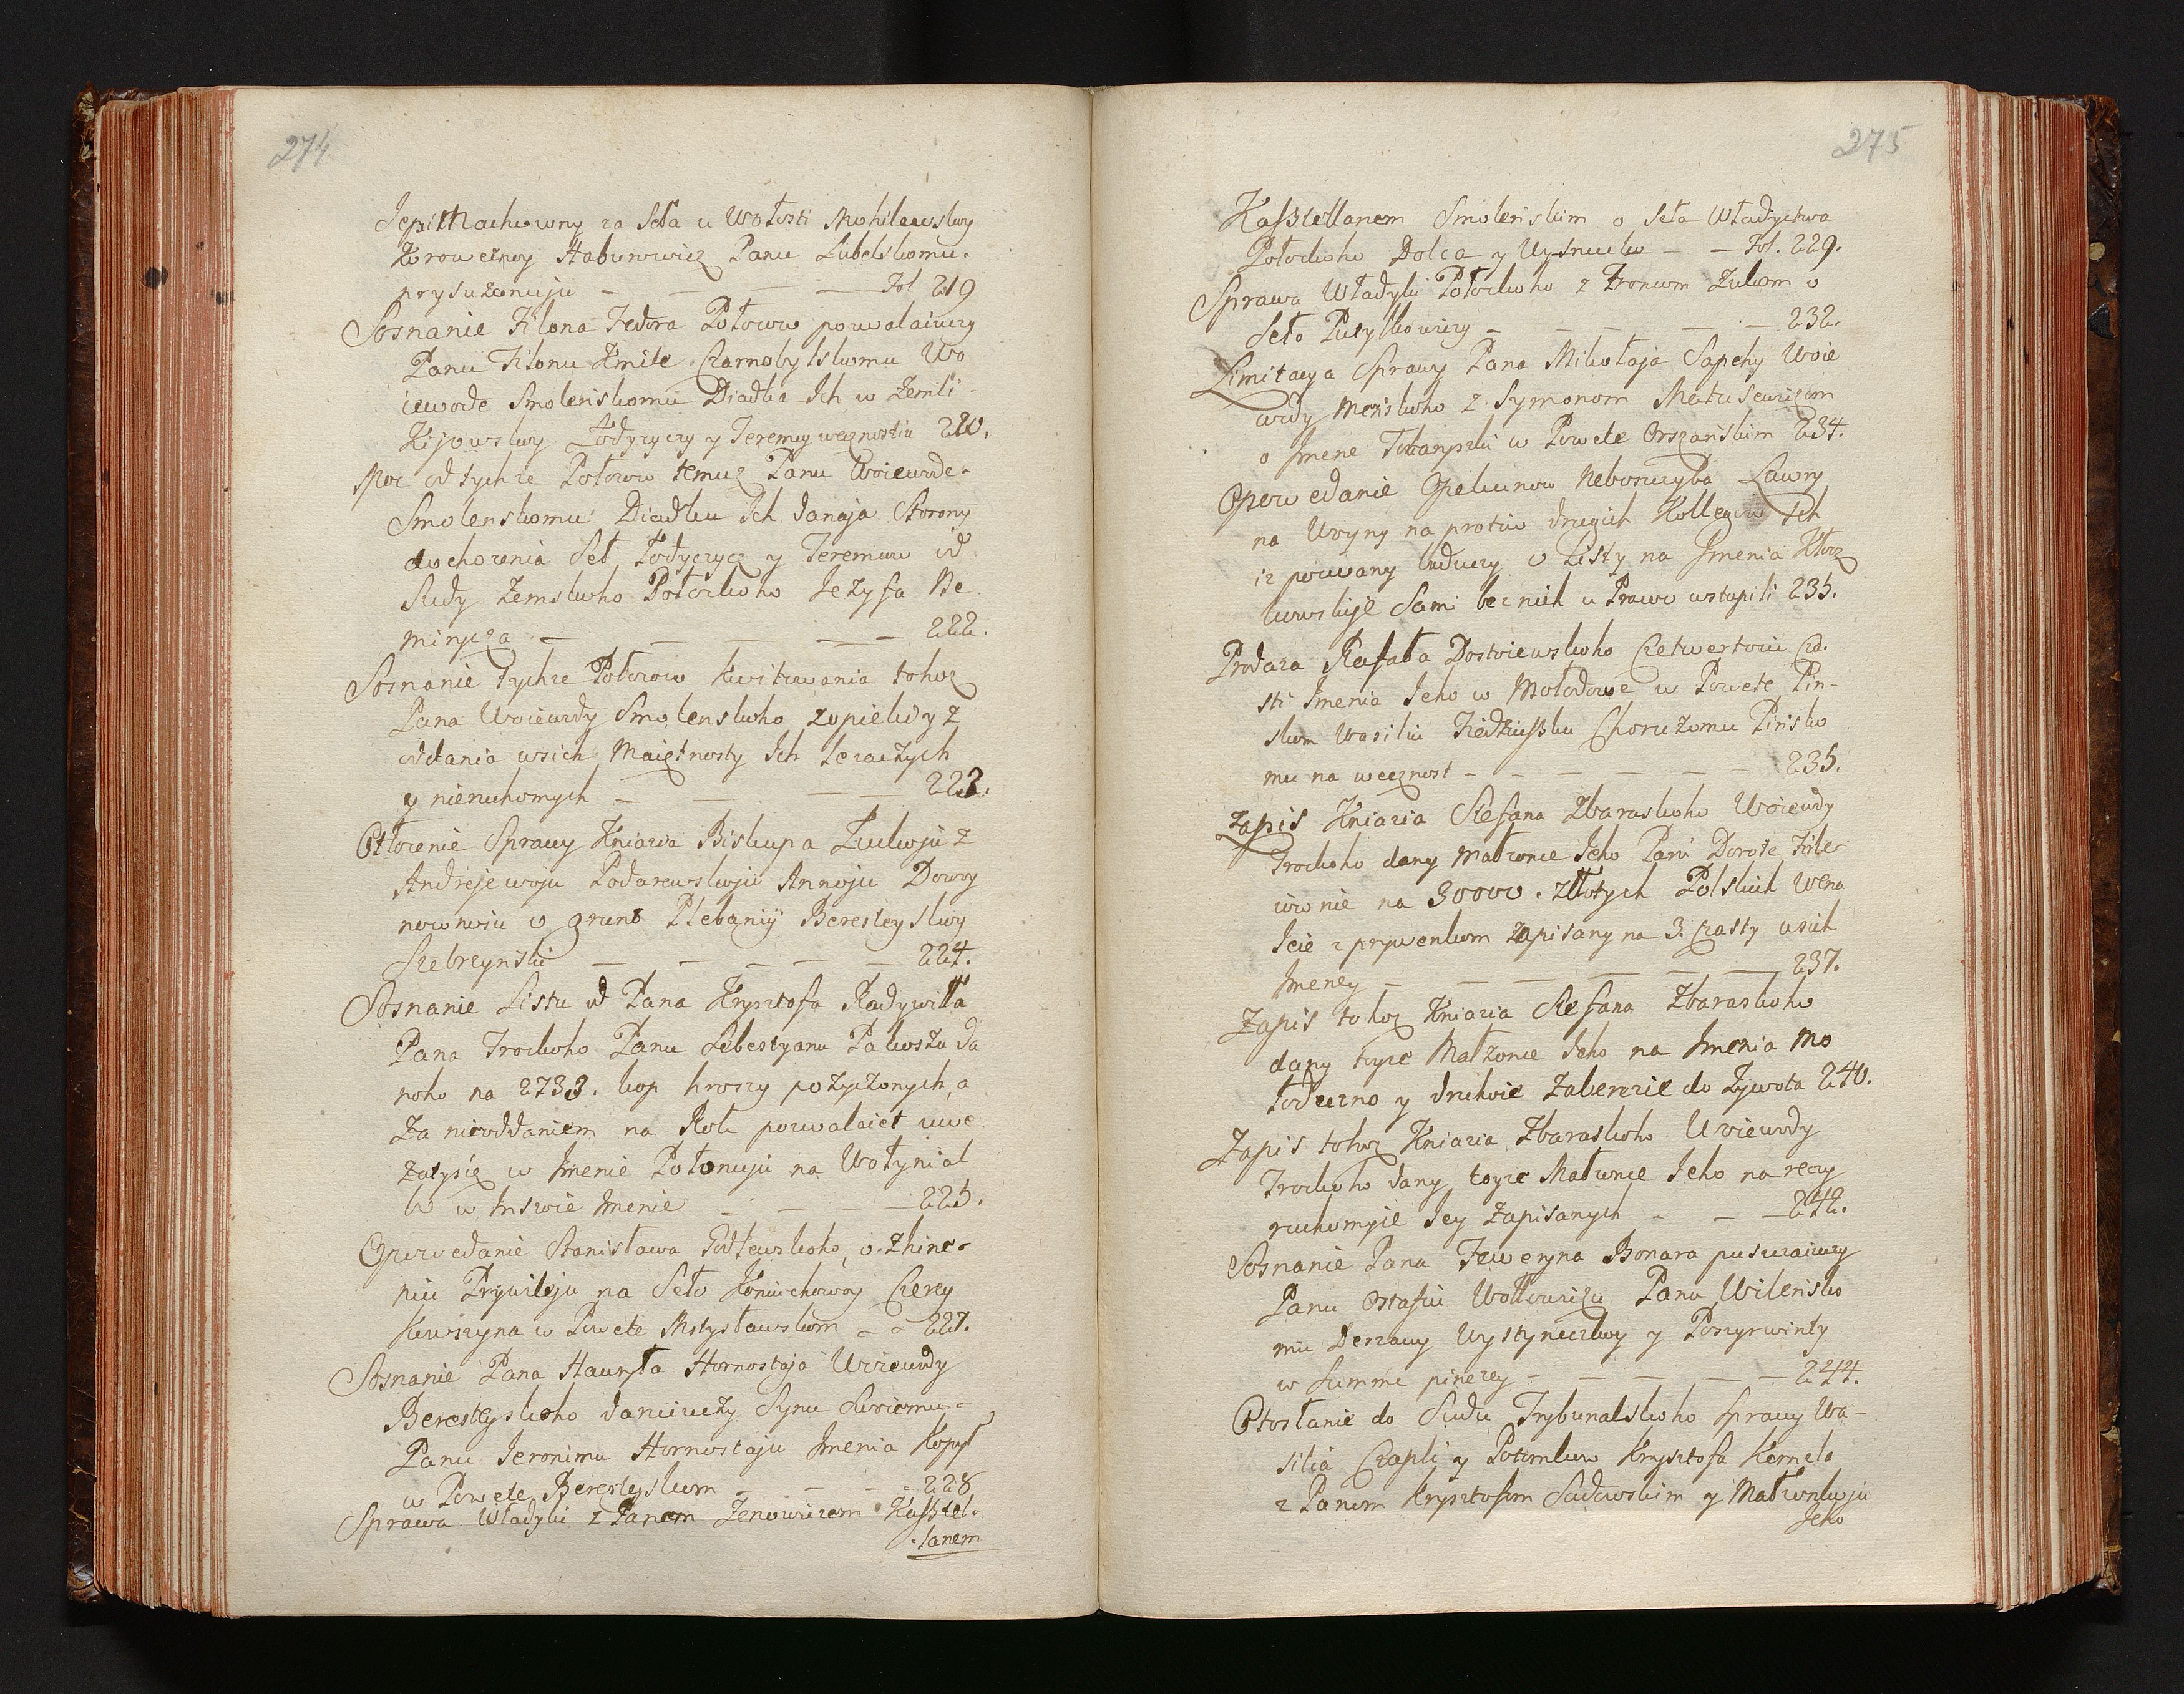 274
JepiMachowny za Seła u Wołosti Mohilewskoy
Zorowetnoy Haburowicz Panu Lubelskomu.
prysuzonuju — — — Fol 219
Sosnanie Filona Fedora Potowo pozwalaiuczy
Panu Filonu Kmite Czarnobylskomu Wo
iewode Smolenskomu Diadku Ich w Zemli
Kijowskoy Łodyzyczy y Jeremey wecznostiu 220.
Moc od tychze Potorow temuz Panu Woiewode
Smolenskomu Diadku Ich danaja Storony
dochozenia Seł Łodyzycz y Jeremow od
Sudy Zemskoho Połockoho Jezyfa Ne
mirycza — — — — 222.
Sosnanie tychze Potorow kwitowania tohoz
Pana Woiewody Smolenskoho z opieki y z
oddania wsich Maiętnosty Ich lezaczych
y nieruchomych — — — — 223.
Otłozenie Sprawy Kniazia Biskupa Łuckoju z
Andrejewoju Podarewskoju Annoju Dowoy
nownoiu o grunt Plebaniy Beresteyskoy
Szebrzynski — — — — — 224.
Sosnanie Listu od Pana Krysztofa Radywiłła
Pana Trockoho Panu Sebestyanu Pakoszu da
noho na 2733. kop hroszy pożyczonych, a
za nieoddaniem na Rok pozwalaiet uwe
zatysię w Imenie Połonuju na Wołynial
bo w Inszoie Imenie — — — — 225.
Opowedanie Stanisława Połtewskoho, o zhine-
niu Prywileju na Seło Koniuchowoy Czerey
Kowszyna w Powete Mstysławskom — — 227.
Sosnanie Pana Hauryła Hornostaja Woiewody
Beresteyskoho daruiuczy Synu Swoiemu
Panu Jeronimu Hornostaju Imenia Kopył
w Powete Beresteyskom — — — 228
Sprawa Władyki z Panom Zenowiczom Kaßztel-
lanem
275
Kaßztellanem Smolenskim o Seła Władyctwa
Połockoho Dolca y Uysnucko — — Fol. 229.
Sprawa Władyki Połockoho z Bronom Zukom o
Seło Putyłkowiczy — — — — — 232.
Limitacya Sprawy Pana Mikołaja Sapehy Woie
wody Menskoho z Symonom Matusewiczom
o Imene Tobanyszki w Powete Orszanskim 234.
Opowedanie Opekunow Neboszczyka Ławry
na Woyny na protiw druzich Kollegow Ich
iz pozwany buduczy o Listy na Imenia Kłoz
kowskije Sami bez nich u Prawo wstupili 235.
Prodaza Rafała Dostoiewskoho Czetwertoiu Cza
sti Imenia Jeho w Mołodowe w Powete Pin-
skom Wasiliu Fiedziußku Choruzomu Pinsko
mu na wecznost — — — — — — 235.
Zapis Kniazia Stefana Zbaraskoho Woiewody
Trockoho dany Matronce Jeho Pani Dorote Firle
iownie na 30000. złłotych Polskich Wena
Jeie z prywenkom zapisany na 3. czasty wsich
Imeney — — — — — — 237.
Zapis tohoz Kniazia Stefana Zbaraskoho
dany toyze Małzonce Jeho na Imenia Mo
łodeczno y druhoie Zaberezie do Zywota 240.
Zapis tohoz Kniazia Zbaraskoho Woiewody
Trockoho dany toyze Małzonce Jeho na reczy
ruchomyie Jey zapisanych — — — 242.
Sosnanie Pana Seweryna Bonara puszczaiuczy
Panu Ostafiu Wołłowiczu Panu Wilensko
mu Derzawy Wystyneczkoy y Poszyrwinty
w summe pinezey — — — — — 244.
Otosłanie do Sudu Trybunalskoho Sprawy Wa-
silia Czapli y Potomkow Krysztofa Kornela
z Panem Krysztofom Sadowskim y Małzonkoju
Jeho